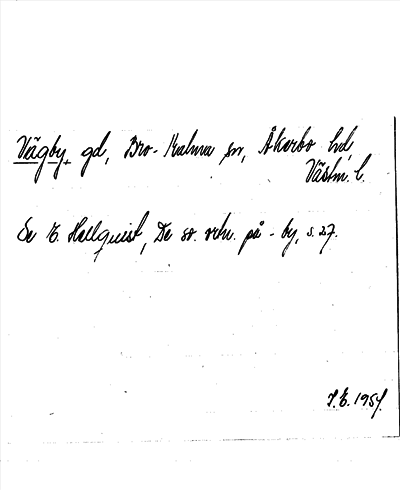 Vägby, gd, Bro-Malma sn, Åkerbo hd,
Västm. l.
Se E. Hellquist, De sv. ortn. på -by, s. 27.
J.E. 1954.